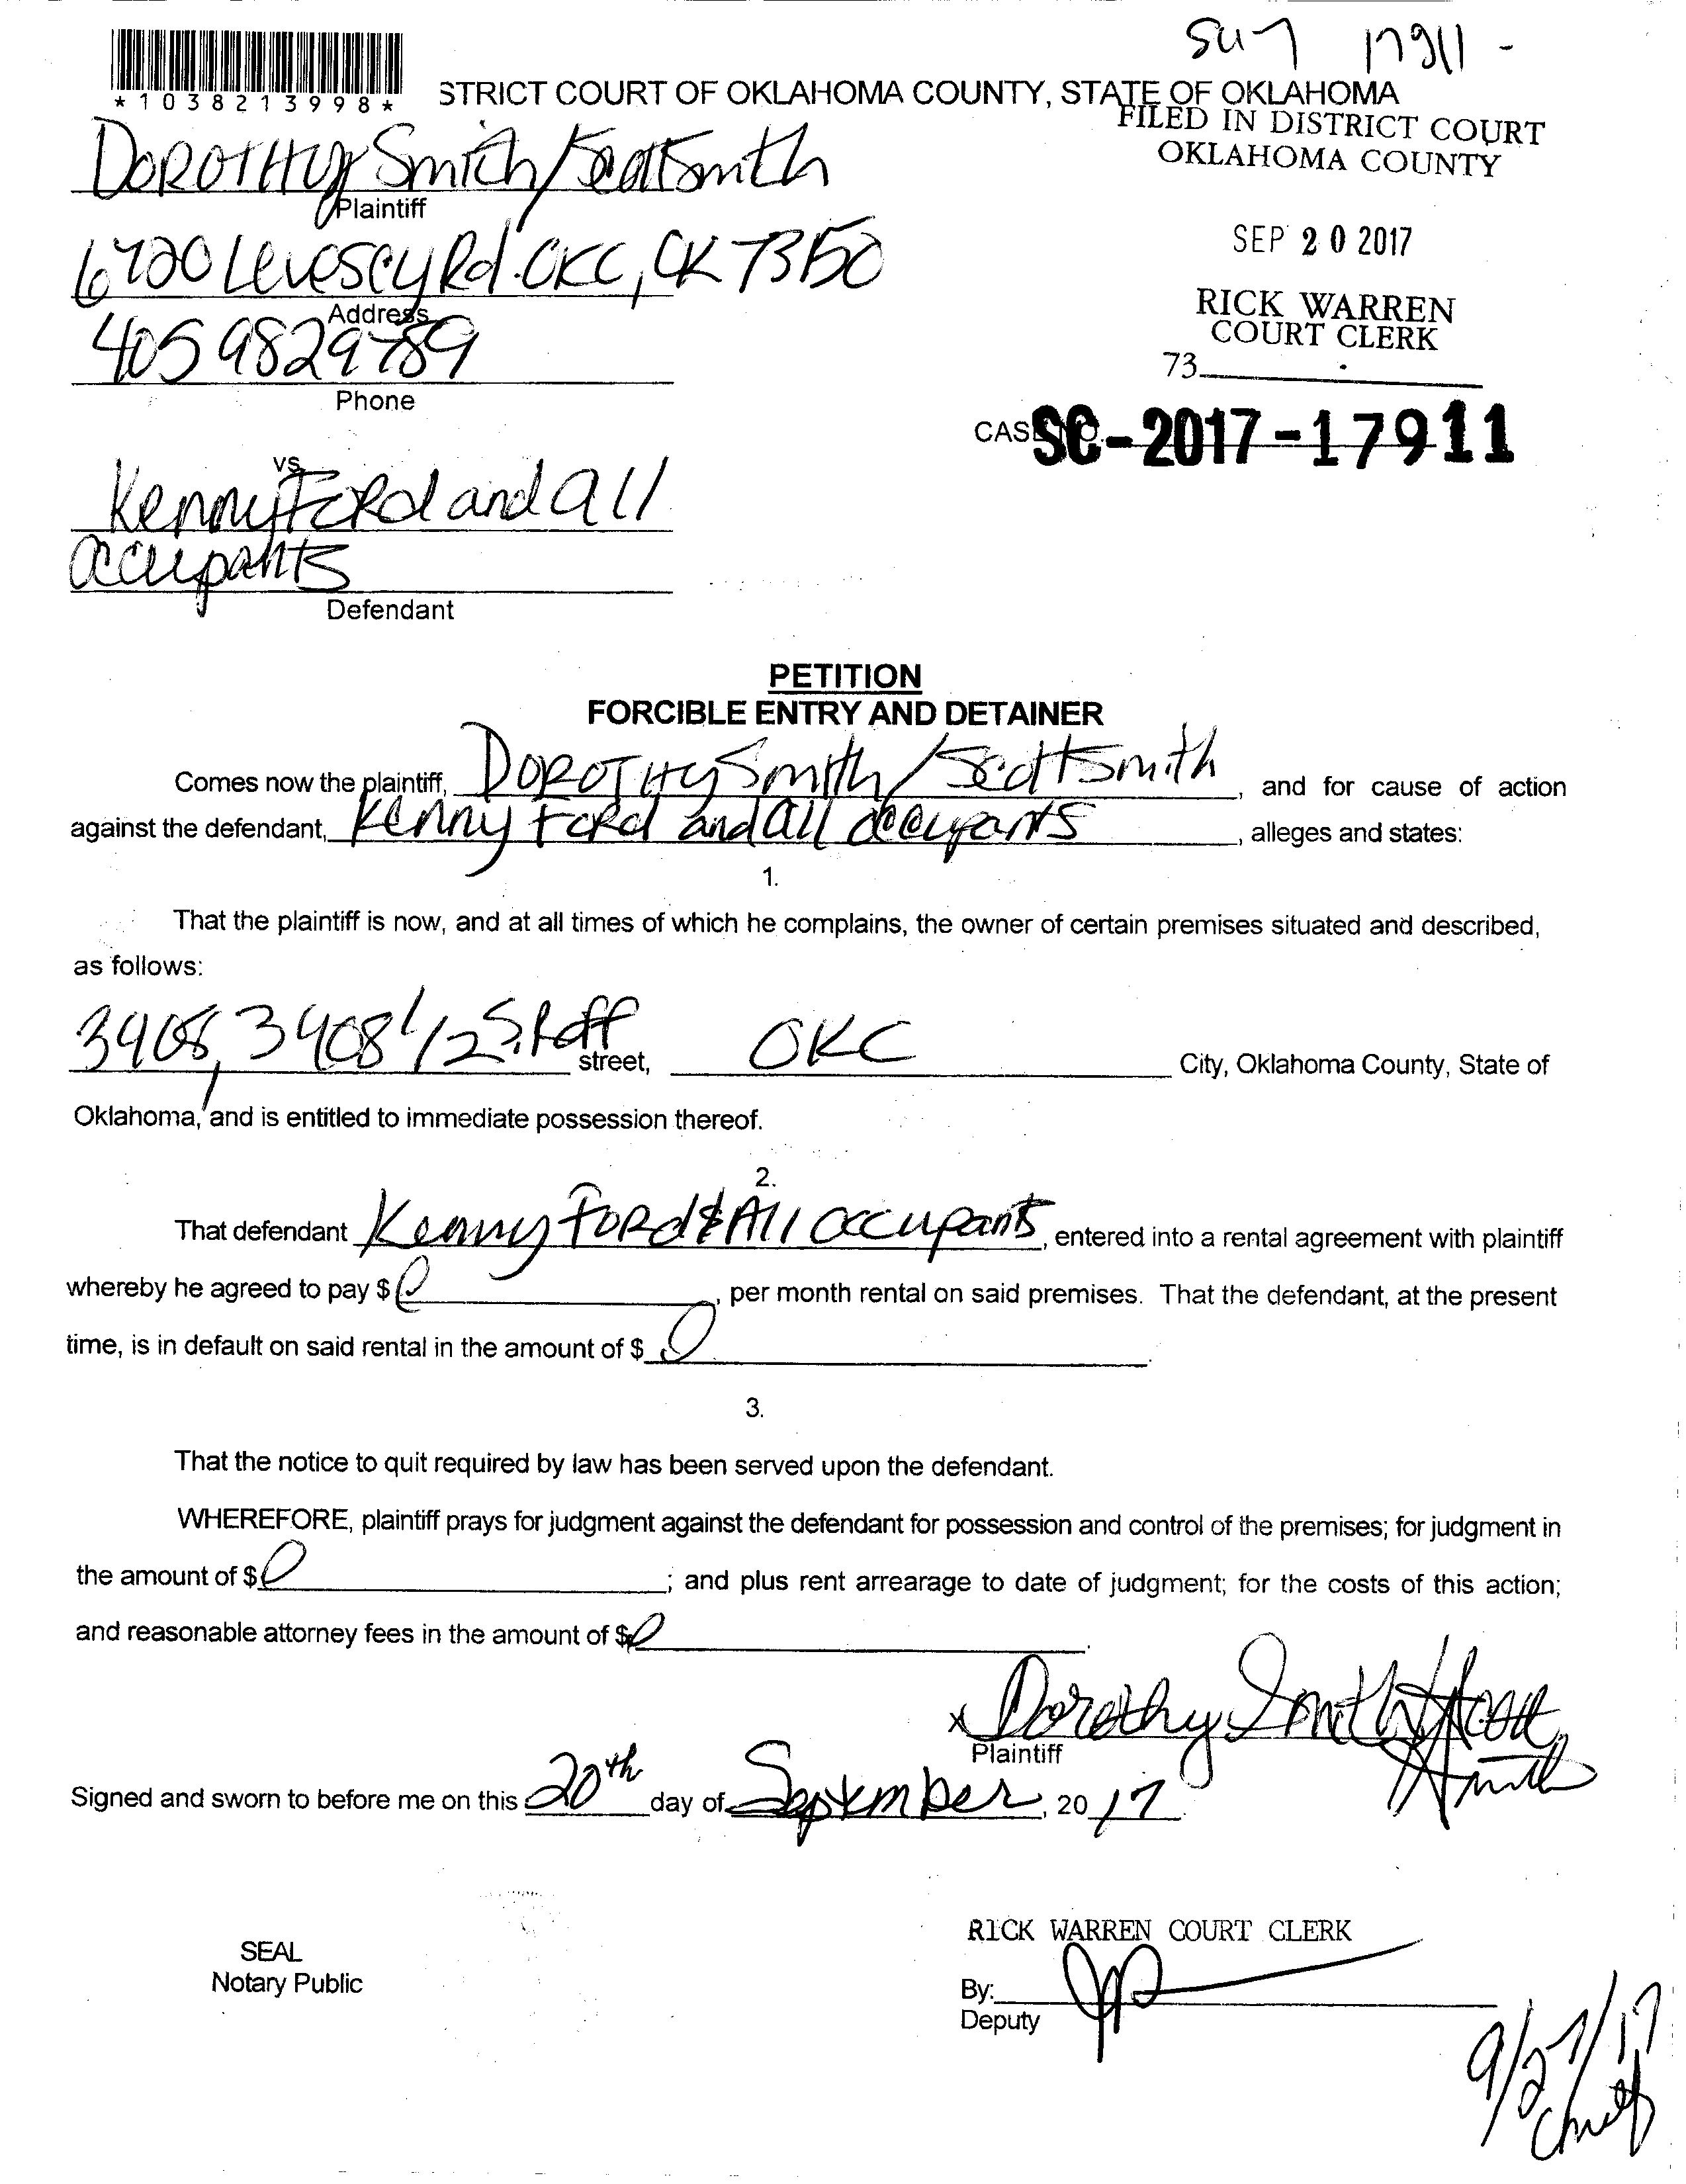 17911 -
*1038213998*
STRICT COURT OF OKLAHOMA COUNTY, STATE OF OKLAHOMA
FILED IN DISTRICT COURT
OKLAHOMA COUNTY
DOROTHY Smith/Scott Smith
Plaintiff
SEP 20 2017
Rd. OKC, OK 73150
Address
RICK WARREN
COURT CLERK
405 9829789
73
Phone
CASE NO. SC-2017-17911
vs.
Kenny Ford and all
occupants
Defendant
PETITION
FORCIBLE ENTRY AND DETAINER
Comes now the plaintiff, DOROTHY Smith/Scott Smith, and for cause of action
against the defendant, Kenny Ford and all occupants, alleges and states:
1.
That the plaintiff is now, and at all times of which he complains, the owner of certain premises situated and described,
as follows:
3408, 3408 1/2 S. Raff street, OKC City, Oklahoma County, State of
Oklahoma, and is entitled to immediate possession thereof.
2.
That defendant Kenny Ford & All occupants, entered into a rental agreement with plaintiff
whereby he agreed to pay $ 0, per month rental on said premises. That the defendant, at the present
time, is in default on said rental in the amount of $ 0.
3.
That the notice to quit required by law has been served upon the defendant.
WHEREFORE, plaintiff prays for judgment against the defendant for possession and control of the premises; for judgment in
the amount of $ 0; and plus rent arrearage to date of judgment; for the costs of this action;
and reasonable attorney fees in the amount of $ 0.
x Dorothy Smith/Scott
Smith
Plaintiff
Signed and sworn to before me on this 20th day of September, 2017.
RICK WARREN COURT CLERK
SEAL
Notary Public
By:
Deputy
9/27/17